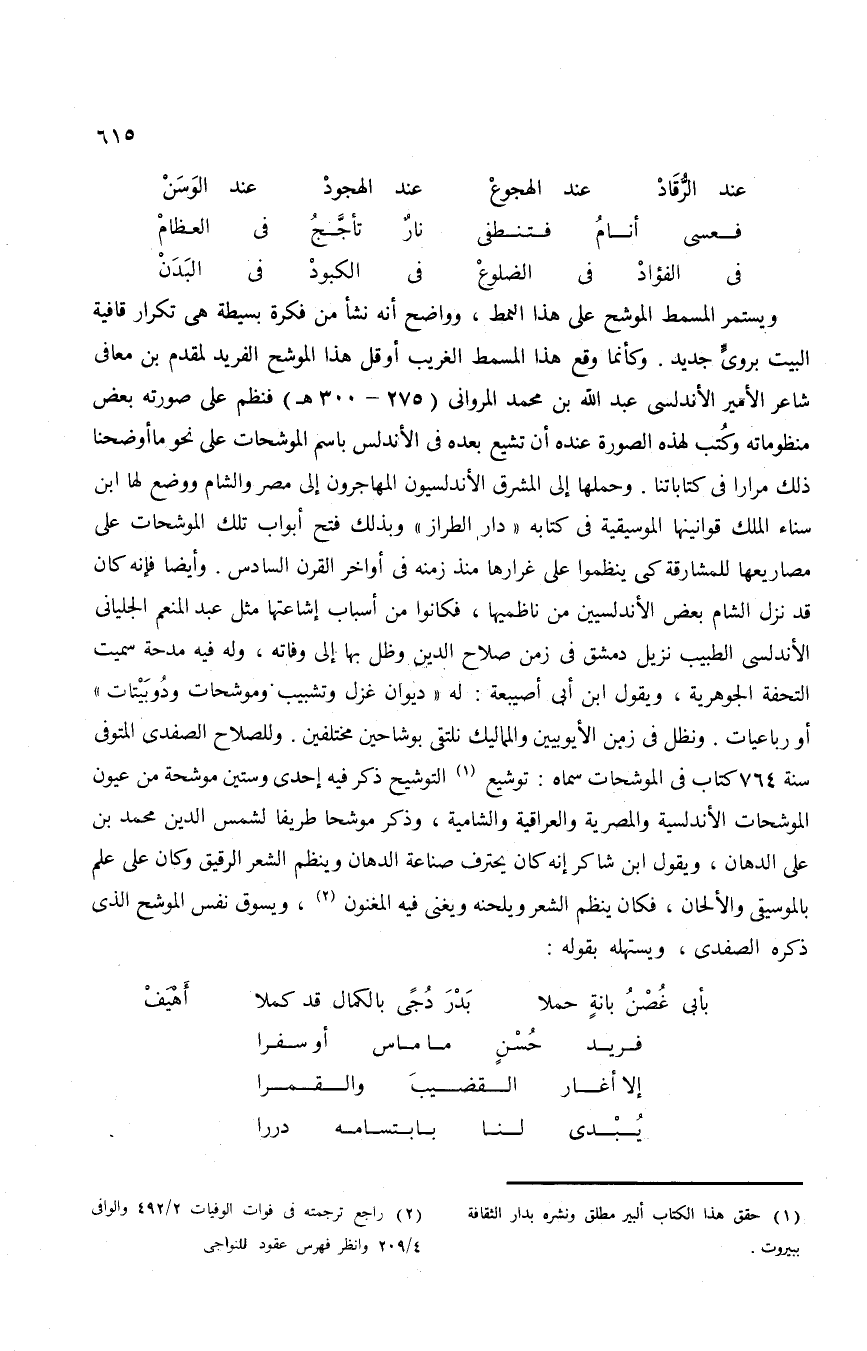 ٦١٥
عند الرُّقَادْ عند الهجوعْ عند الهجودْ عند الوَسَنْ
فـعسى أنـامُ فـتـنـطفى نارٌ تأجَّـجُ فى العظامْ
فى الفؤادْ فى الضلوعْ فى الكبودْ فى البَدَنْ
ويستمر المسمط الموشح على هذا النمط ، وواضح أنه نشأ من فكرة بسيطة هى تكرار قافية
البيت بروىٍّ جديد . وكأنما وقع هذا المسمط الغريب أوقل هذا الموشح الفريد لمقدم بن معافى
شاعر الأمير الأندلسى عبد الله بن محمد المروانى ( ٢٧٥ – ٣٠٠ هـ ) فنظم على صورته بعض
منظوماته وكُتب لهذه الصورة عنده أن تشيع بعده فى الأندلس باسم الموشحات على نحو ماأوضحنا
ذلك مرارا فى كتاباتنا . وحملها إلى المشرق الأندلسيون المهاجرون إلى مصر والشام ووضع لها ابن
سناء الملك قوانينها الموسيقية فى كتابه « دار الطراز » وبذلك فتح أبواب تلك الموشحات على
مصاريعها للمشارقة كى ينظموا على غرارها منذ زمنه فى أواخر القرن السادس . وأيضا فإنه كان
قد نزل الشام بعض الأندلسيين من ناظميها ، فكانوا من أسباب إشاعتها مثل عبد المنعم الجليانى
الأندلسى الطبيب نزيل دمشق فى زمن صلاح الدين وظل بها إلى وفاته ، وله فيه مدحة سميت
التحفة الجوهرية ، ويقول ابن أبى أصيبعة : له « ديوان غزل وتشبيب وموشحات ودُوبَيْتات »
أو رباعيات . ونظل فى زمن الأيوبيين والماليك نلتقى بوشاحين مختلفين . وللصلاح الصفدى المتوفى
سنة ٧٦٤ كتاب فى الموشحات سماه : توشيع (١) التوشيح ذكر فيه إحدى وستين موشحة من عيون
الموشحات الأندلسية والمصرية والعراقية والشامية ، وذكر موشحا طريفا لشمس الدين محمد بن
على الدهان ، ويقول ابن شاكر إنه كان يحترف صناعة الدهان وينظم الشعر الرقيق وكان على علم
بالموسيقى والألحان ، فكان ينظم الشعر ويلحنه ويغنى فيه المغنون (٢) ، ويسوق نفس الموشح الذى
ذكره الصفدى ، ويستهله بقوله :
بأبى غُصْنُ بانةٍ حملا بَدْرَ دُجًى بالكمال قد كملا أَهْيَفْ
فـريـد حُسْنٍ مـا مـاس أو سـفـرا
إلا أغـار الـقضـيـبَ والـقـمـرا
يُـبْـدى لـنـا بـابـتـسـامـه دررا
(١) حقق هذا الكتاب ألبير مطلق ونشره بدار الثقافة
ببيروت .
(٢) راجع ترجمته فى فوات الوفيات ٤٩٢/٢ والوافى
٢٠٩/٤ وانظر فهرس عقود للنواجى